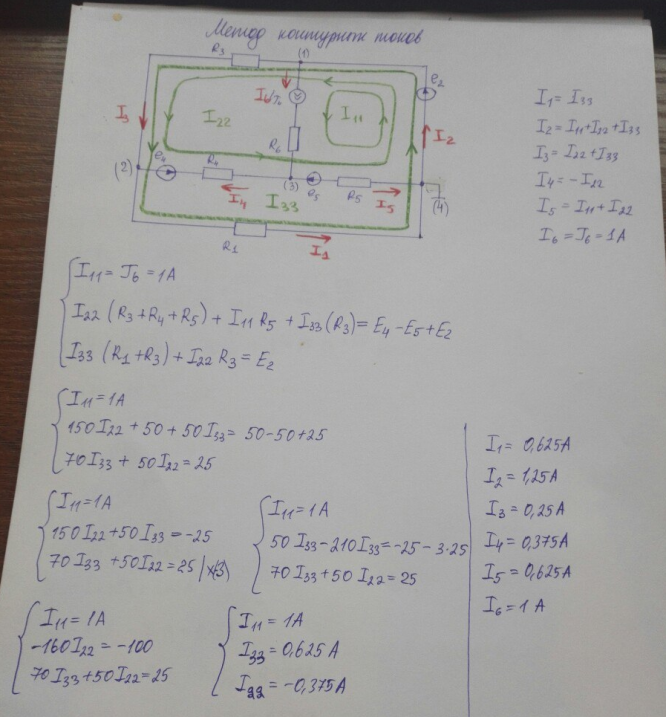 Метод контурных токов
R3
(1)
e2
I6
J6
I3
I22
I11
R6
I2
e4
R4
(2)
(3)
e5
R5
I4
I5
(4)
I33
R1
I1
I1 = I33
I2 = I11+I22+I33
I3 = I22+I33
I4 = -I22
I5 = I11+I22
I6 = J6 = 1A
I11 = J6 = 1A
I22 (R3+R4+R5) + I11 R5 + I33(R3) = E4 - E5 + E2
I33 (R1+R3) + I22 R3 = E2
I11 = 1A
150I22 + 50 + 50I33 = 50-50+25
70I33 + 50I22 = 25
I11 = 1A
150I22+50I33 = -25
70I33 +50I22 = 25 |×(-3)
I11 = 1A
50I33-210I33=-25-3·25
70I33+50I22=25
I11 = 1A
-160I22 = -100
70I33+50I22=25
I11 = 1A
I33 = 0,625A
I22 = -0,375A
I1 = 0,625A
I2 = 1,25A
I3 = 0,25A
I4 = 0,375A
I5 = 0,625A
I6 = 1 A